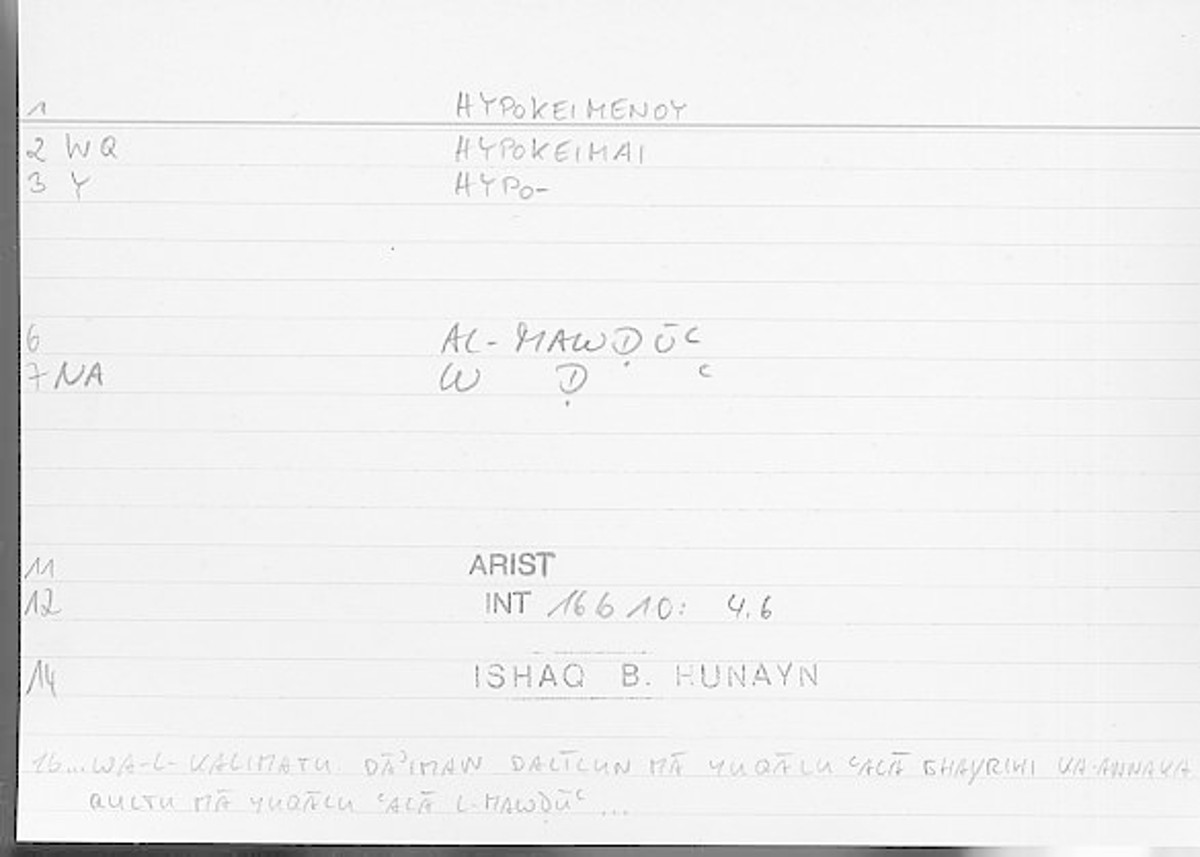 1 HYPOKEIMENOY
2 WQ HYPOKEIMAI
3 Y HYPO-
6 AL-MAWḌŪʿ
7 NA W Ḍ ʿ
11 ARIST
12 INT 16 b 10: 4.6
14 ISHAQ B. HUNAYN
16...WA-L-KALIMATU DĀʾIMAN DALĪLUN MĀ YUQĀLU ʿALĀ GHAYRIHI KA-ANNAKA
QULTU MĀ YUQĀLU ʿALĀ L-MAWḌŪʿ ...